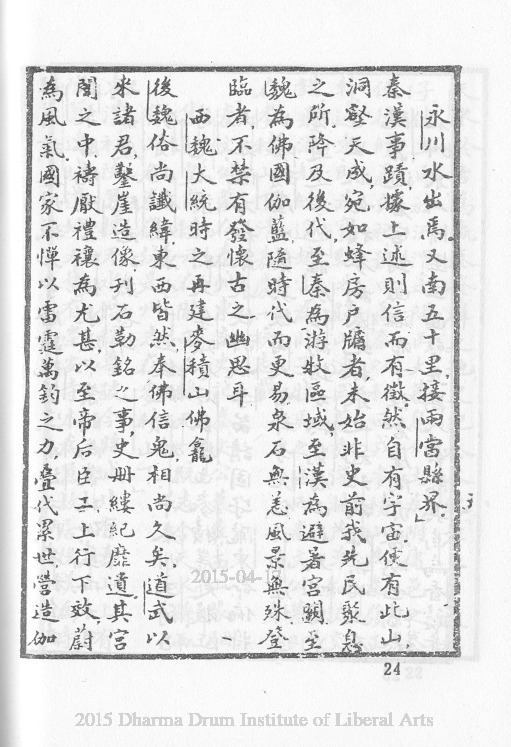 永川水出焉。又南五十里,接兩當縣界。」
秦漢事蹟,據上述則信而有徵,然自有宇宙,便有此山,
洞壑天成,宛如蜂房戶牖者,未始非史前我先民聚息
之所,降及後代,至秦為游牧區域,至漢為避暑宮闕,至
魏為佛國伽藍,隨時代而更易,泉石無恙,風景無殊,登
臨者,不禁有發懷古之幽思耳。
西魏大統時之再建麥積山佛龕
後魏俗尚讖緯,東西皆然,奉佛信鬼,相尚久矣,道武以
來諸君,鑿崖造像,刊石勒銘之事,史冊縷紀靡遺,其宮
闈之中,禱厭禮禳為尤甚,以至帝后臣工,上行下效,蔚
為風氣,國家不憚以雷霆萬鈞之力,疊代累世,營造伽
24
2015-04-17
2015 Dharma Drum Institute of Liberal Arts